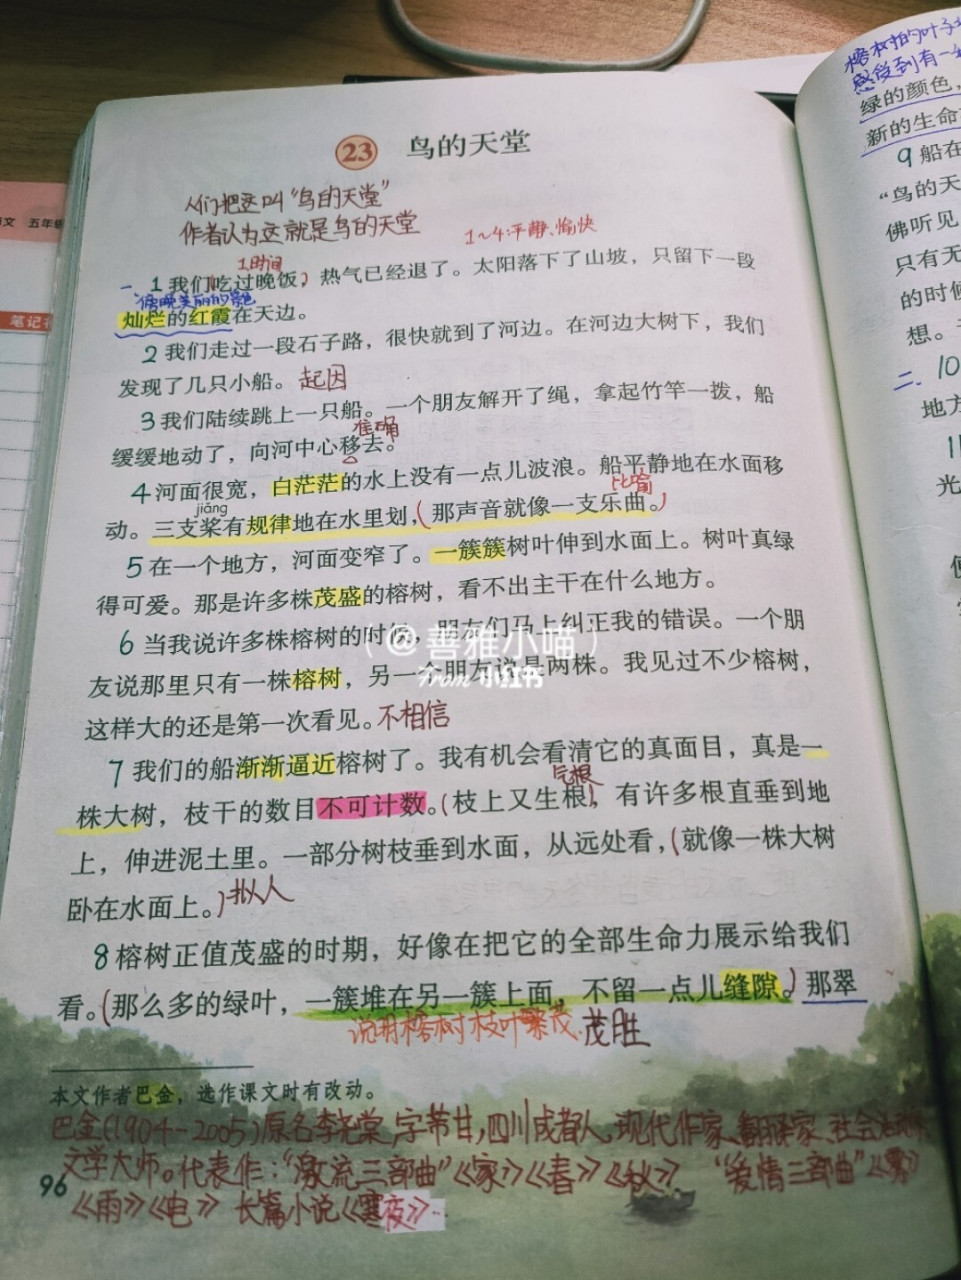 23 鸟的天堂
人们把这叫“鸟的天堂”
作者认为这就是鸟的天堂
1~4:平静、愉快
1.时间
一、1 我们吃过晚饭，热气已经退了。太阳落下了山坡，只留下一段
傍晚美丽的景色
灿烂的红霞在天边。
2 我们走过一段石子路，很快就到了河边。在河边大树下，我们
发现了几只小船。起因
3 我们陆续跳上一只船。一个朋友解开了绳，拿起竹竿一拨，船
准确
缓缓地动了，向河中心移去。
4 河面很宽，白茫茫的水上没有一点儿波浪。船平静地在水面移
jiǎng
比喻
动。三支桨有规律地在水里划，(那声音就像一支乐曲。)
5 在一个地方，河面变窄了。一簇簇树叶伸到水面上。树叶真绿
得可爱。那是许多株茂盛的榕树，看不出主干在什么地方。
6 当我说许多株榕树的时候，朋友们马上纠正我的错误。一个朋
(@善雅小喵)
友说那里只有一株榕树，另一个朋友说是两株。我见过不少榕树，
From 小红书
这样大的还是第一次看见。不相信
7 我们的船渐渐逼近榕树了。我有机会看清它的真面目，真是一
气根
株大树，枝干的数目不可计数。(枝上又生根)，有许多根直垂到地
上，伸进泥土里。一部分树枝垂到水面，从远处看，(就像一株大树
卧在水面上。)拟人
8 榕树正值茂盛的时期，好像在把它的全部生命力展示给我们
看。(那么多的绿叶，一簇堆在另一簇上面，不留一点儿缝隙。)那翠
说明榕树枝叶繁茂 茂胜
本文作者巴金，选作课文时有改动。
巴金(1904-2005)原名李尧棠，字芾甘，四川成都人，现代作家、翻译家、社会活动
文学大师。代表作：“激流三部曲”《家》《春》《秋》 “爱情三部曲”《雾》
96
《雨》《电》 长篇小说《寒夜》…
文 五年级
榕树的叶子
感受到有一
绿的颜色，
新的生命
9 船在
“鸟的天
佛听见
只有无
的时候
想。
二、10
地方
11
光